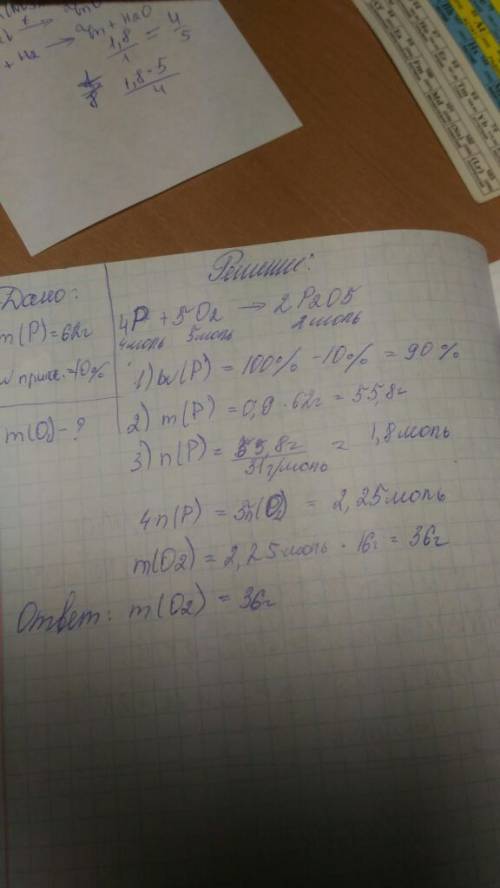 + H2 → Zn + H2O
1,8/1 = 4/5
1,8·5/4
Решение:
Дано:
m(P)=62г
w прим.=10%
m(O2)-?
4P + 5O2 → 2P2O5
4моль 5моль 2моль
1) w(P) = 100% - 10% = 90%
2) m(P) = 0,9 · 62г = 55,8г
3) n(P) = 55,8г/31г/моль = 1,8моль
4n(P) = 5n(O2) = 2,25моль
m(O2) = 2,25моль · 16г = 36г
Ответ: m(O2) = 36г